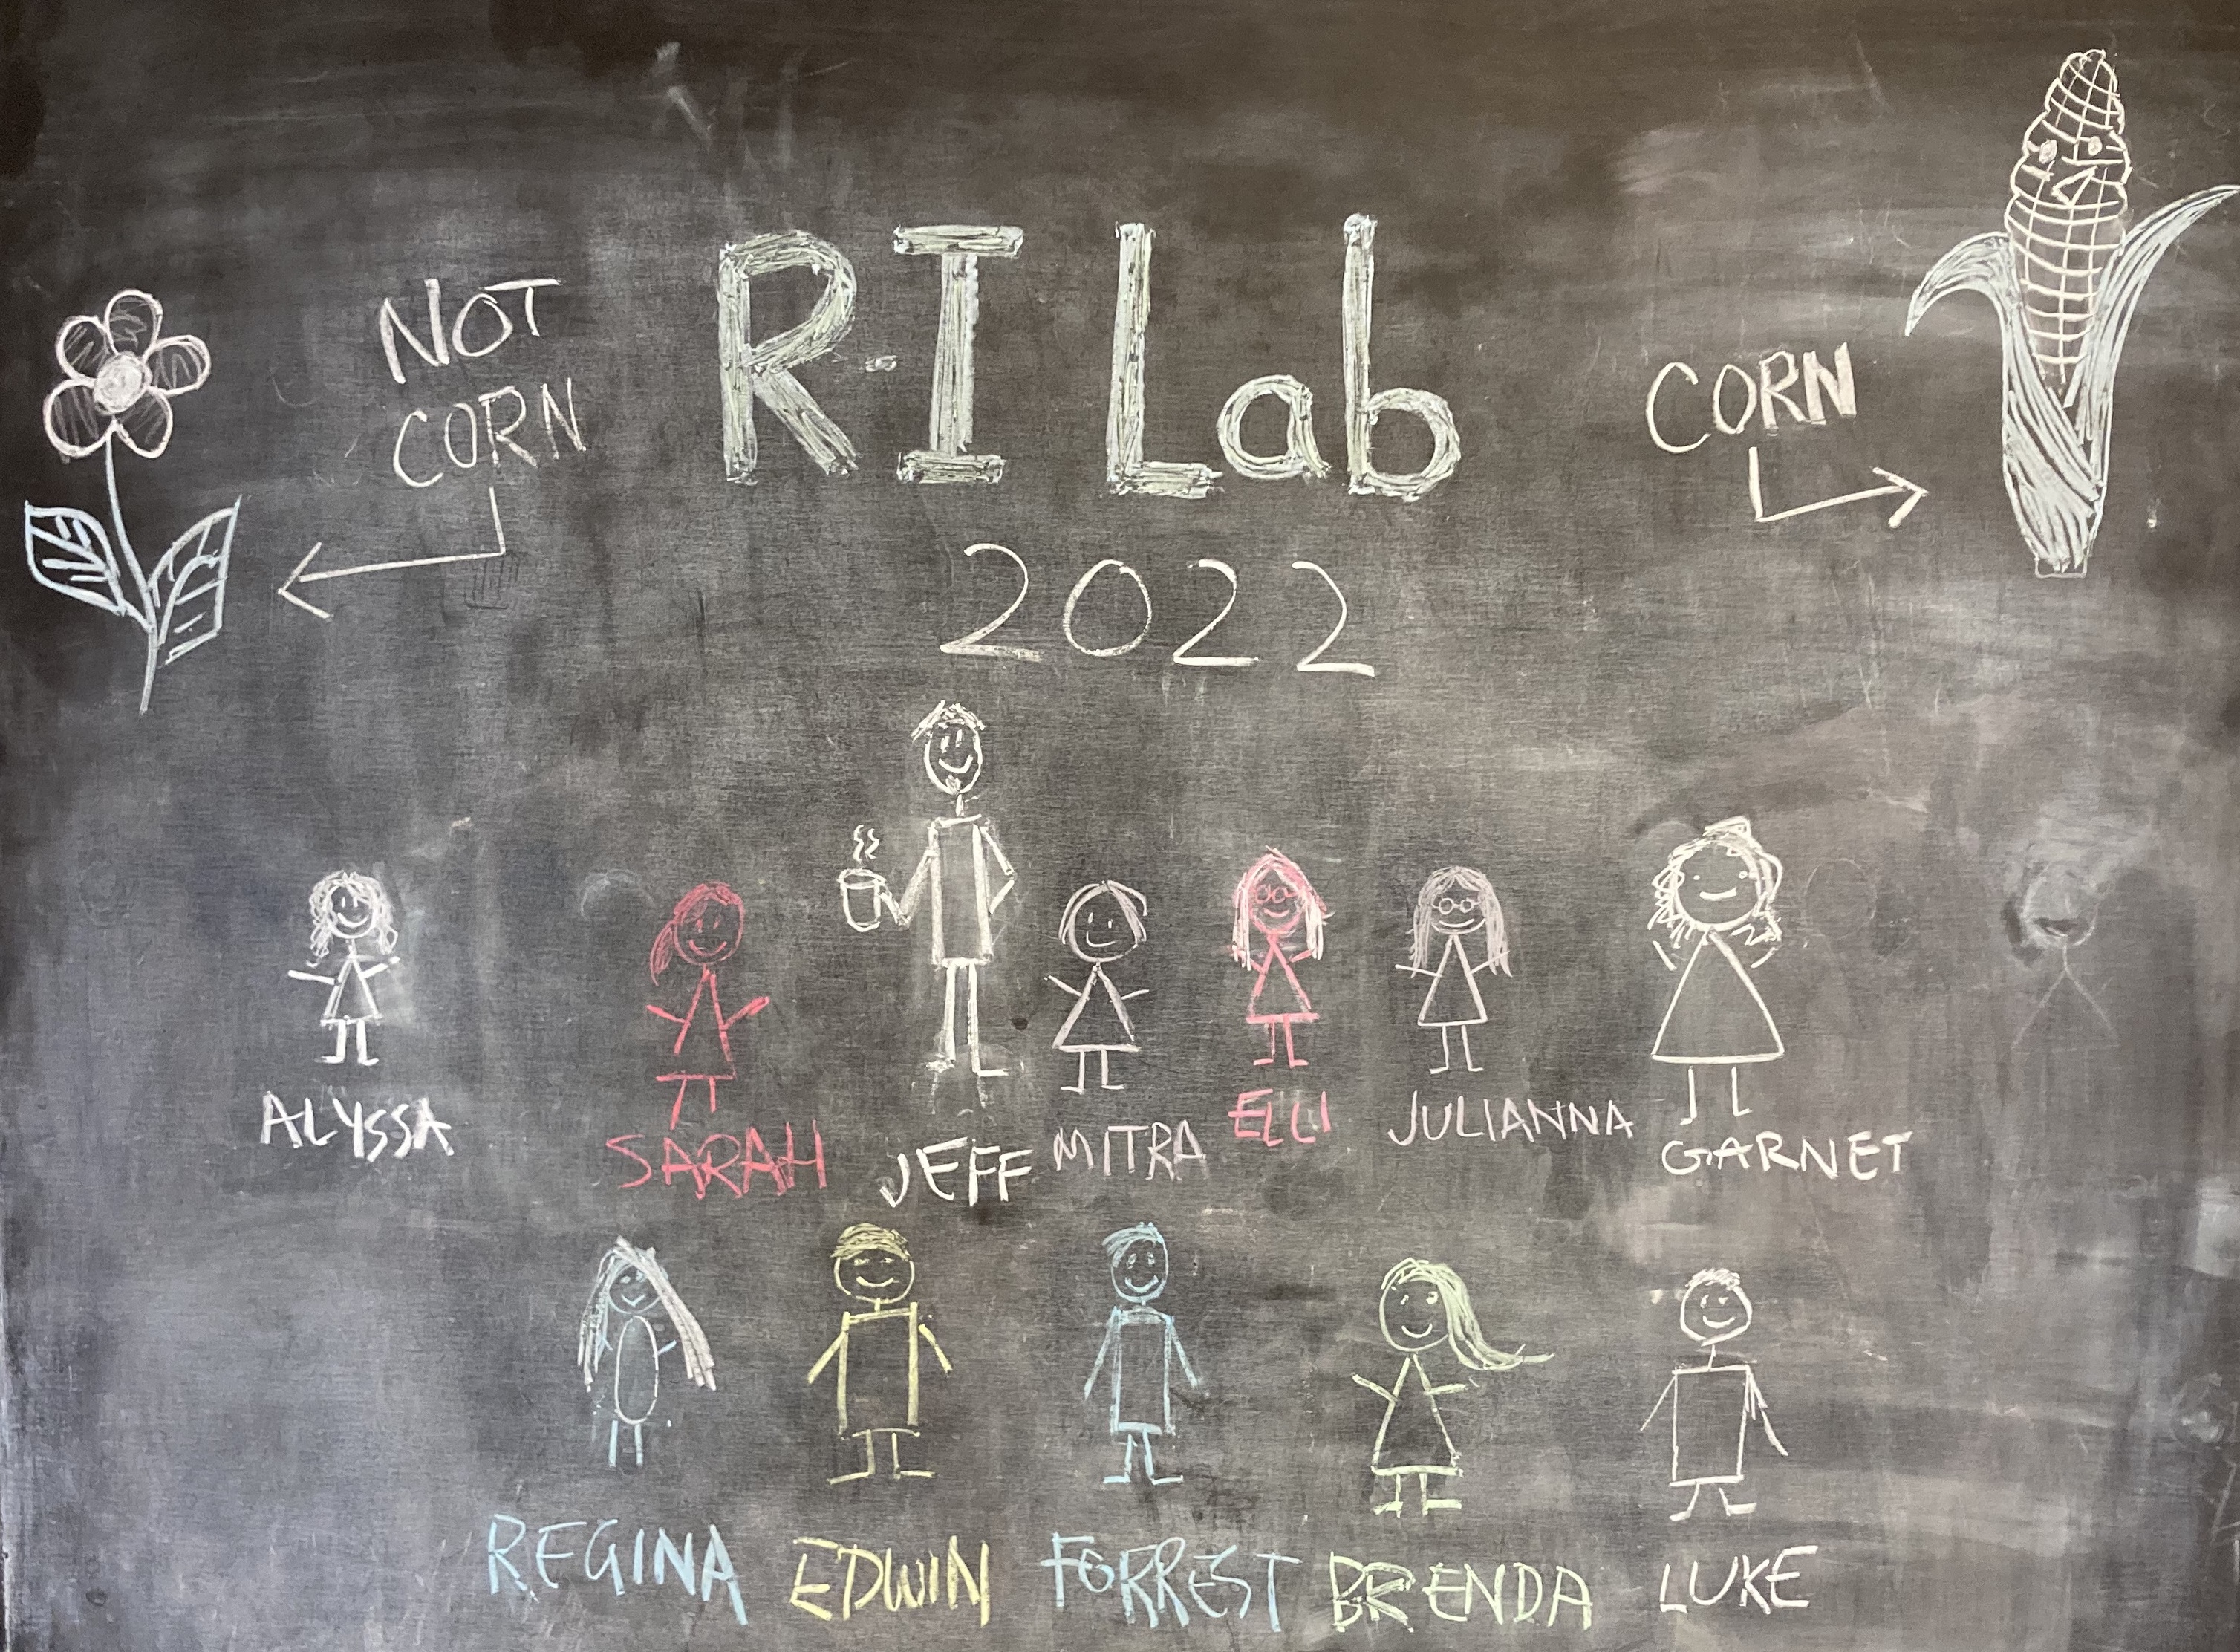 R-I Lab
NOT
CORN
CORN
2022
ALYSSA
SARAH
JEFF
MITRA
ELLI
JULIANNA
GARNET
REGINA
EDWIN
FORREST
BRENDA
LUKE